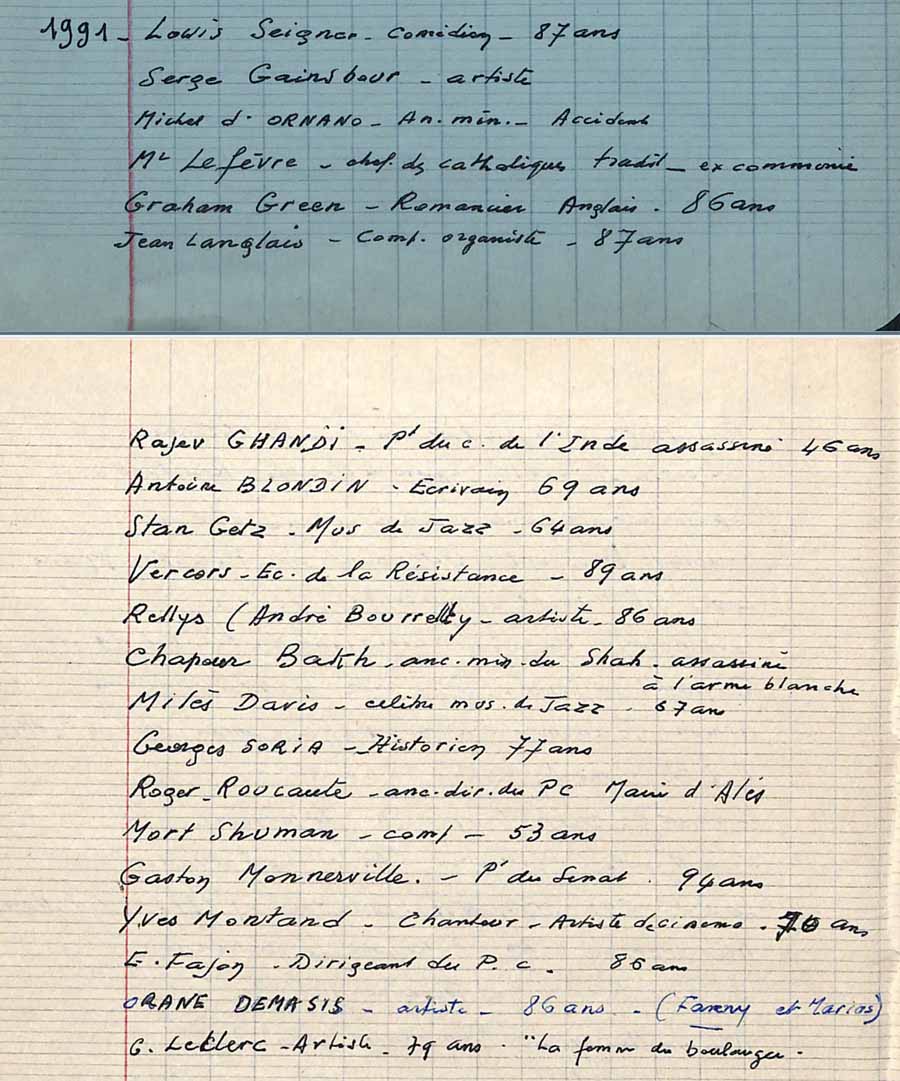 1991 - Louis Seigner - comédien - 87 ans
Serge Gainsbour - artiste
Michel d'ORNANO - An. min. - Accident
Mr Lefèvre - chef. des catholiques tradit - ex communie
Graham Green - Romancier Anglais - 86 ans
Jean Langlais - Comp. organiste - 87 ans
Rajev GHANDI - Pt du c. de l'Inde assassiné 46 ans
Antoine BLONDIN - Ecrivain 69 ans
Stan Getz - Mus de Jazz - 64 ans
Vercors - Ec. de la Résistance - 89 ans
Rellys (André Bourrelly - artiste - 86 ans
Chapour Bakh - anc. min. du Shah - assassiné
à l'arme blanche
Milès Davis - celèbre mus. de Jazz - 67 ans
Georges SORIA - Historien 77 ans
Roger Roucaute - anc. dir. du PC Maire d'Alés
Mort Shuman - comp - 53 ans
Gaston Monnerville. - Pt du Senat. 94 ans
Yves Montand - Chanteur - Artiste de cinema - 70 ans
E. Fajon - Dirigeant du P. C. 86 ans
ORANE DEMASIS - artiste - 86 ans - (Fanny et Marius)
G. Leclerc - Artiste - 79 ans - "La femme du boulanger -